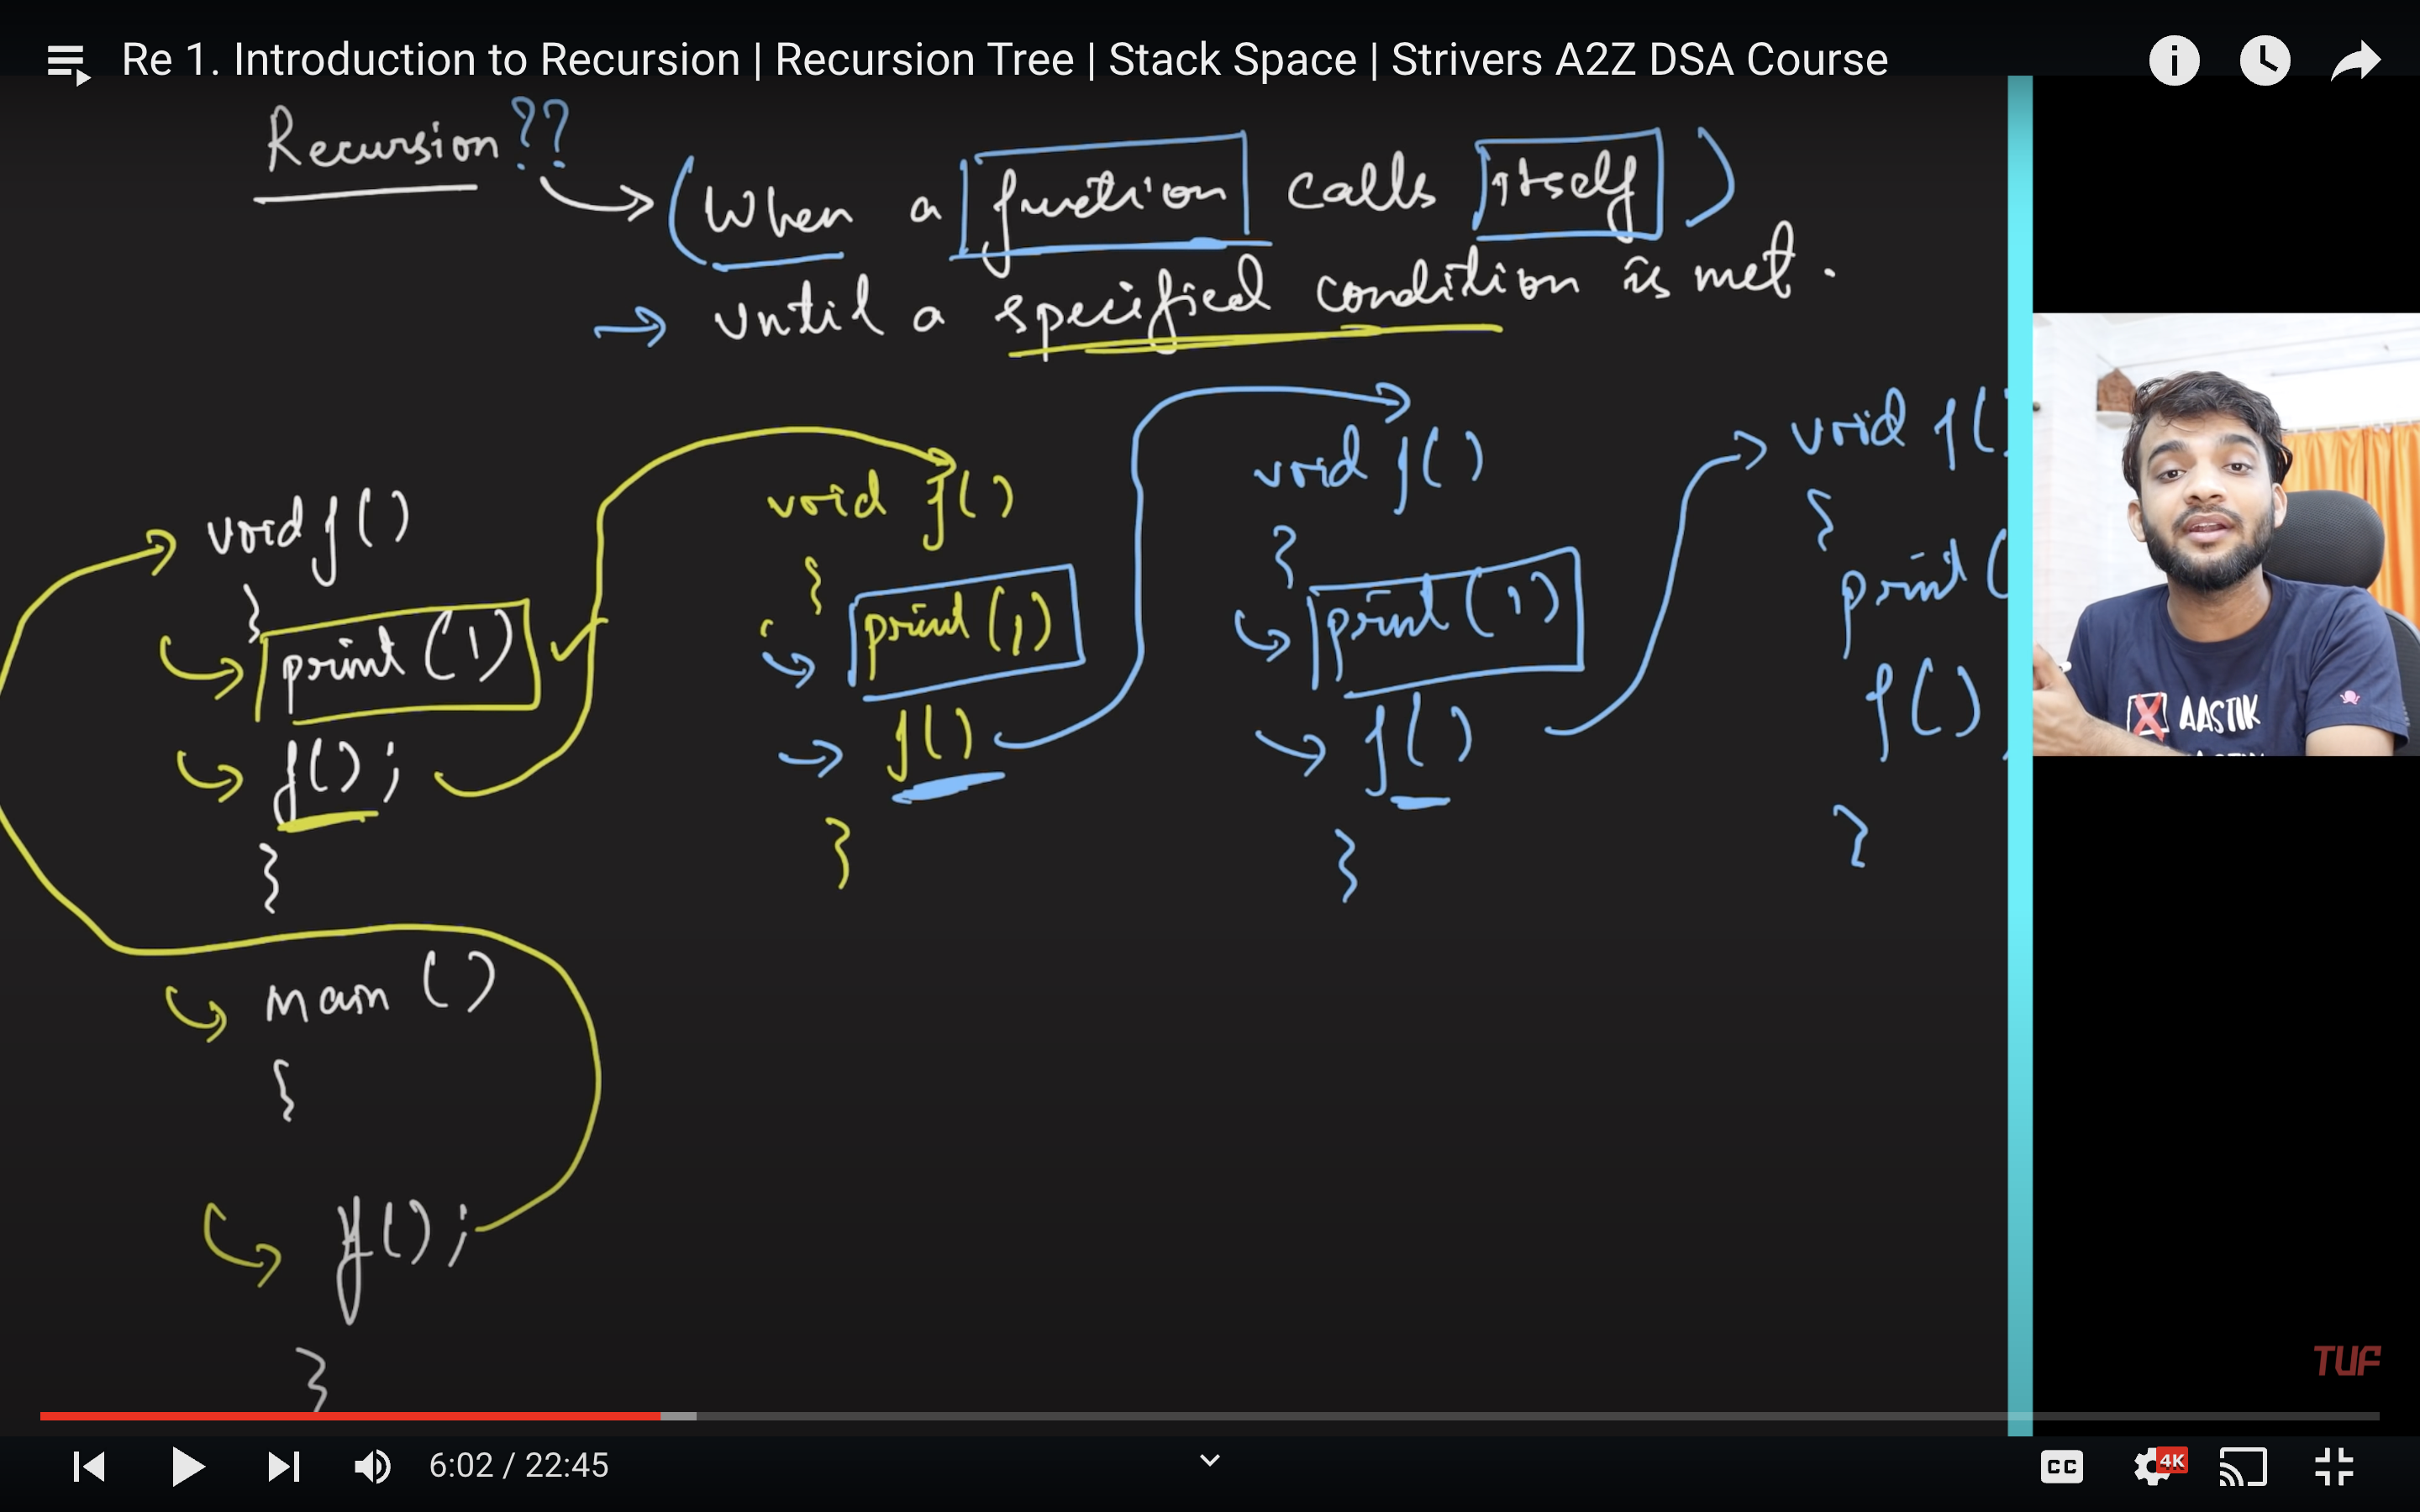 Re 1. Introduction to Recursion | Recursion Tree | Stack Space | Strivers A2Z DSA Course
Recursion ??
(When a function calls itself)
until a specified condition is met.
void f()
{
print (1)
f();
}
main ()
{
f();
}
void f()
{
print (1)
f()
}
void f()
{
print (1)
f()
}
void f(
{
print (
f()
}
AASTIK
TUF
6:02 / 22:45
CC
4K